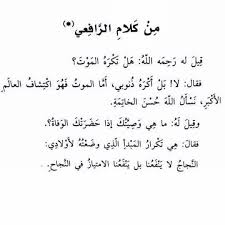 مِنْ كَلَامِ الرَّافِعِي(*)
قِيلَ لَه رَحِمَه اللَّهُ: هَلْ تَكْرَهُ المَوْتَ؟
فقال: لا! بَلْ أَكْرَهُ ذُنوبي، أمَّا الموتُ فَهُوَ اكْتِشافُ العالَمِ
الأكْبَرِ، نَسْألُ اللَّهَ حُسْنَ الخاتِمَةِ.
وقِيلَ لَهُ: ما هِي وَصِيَّتُكَ إذا حَضَرَتْكَ الوَفاةُ؟.
فقال: هِي تَكْرارُ المَبْدَإ الَّذِي وضَعْتُهُ لأوْلادِي:
النَّجاحُ لا يَنْفَعُنا بل يَنْفَعُنا الامتِيازُ في النَّجاحِ.